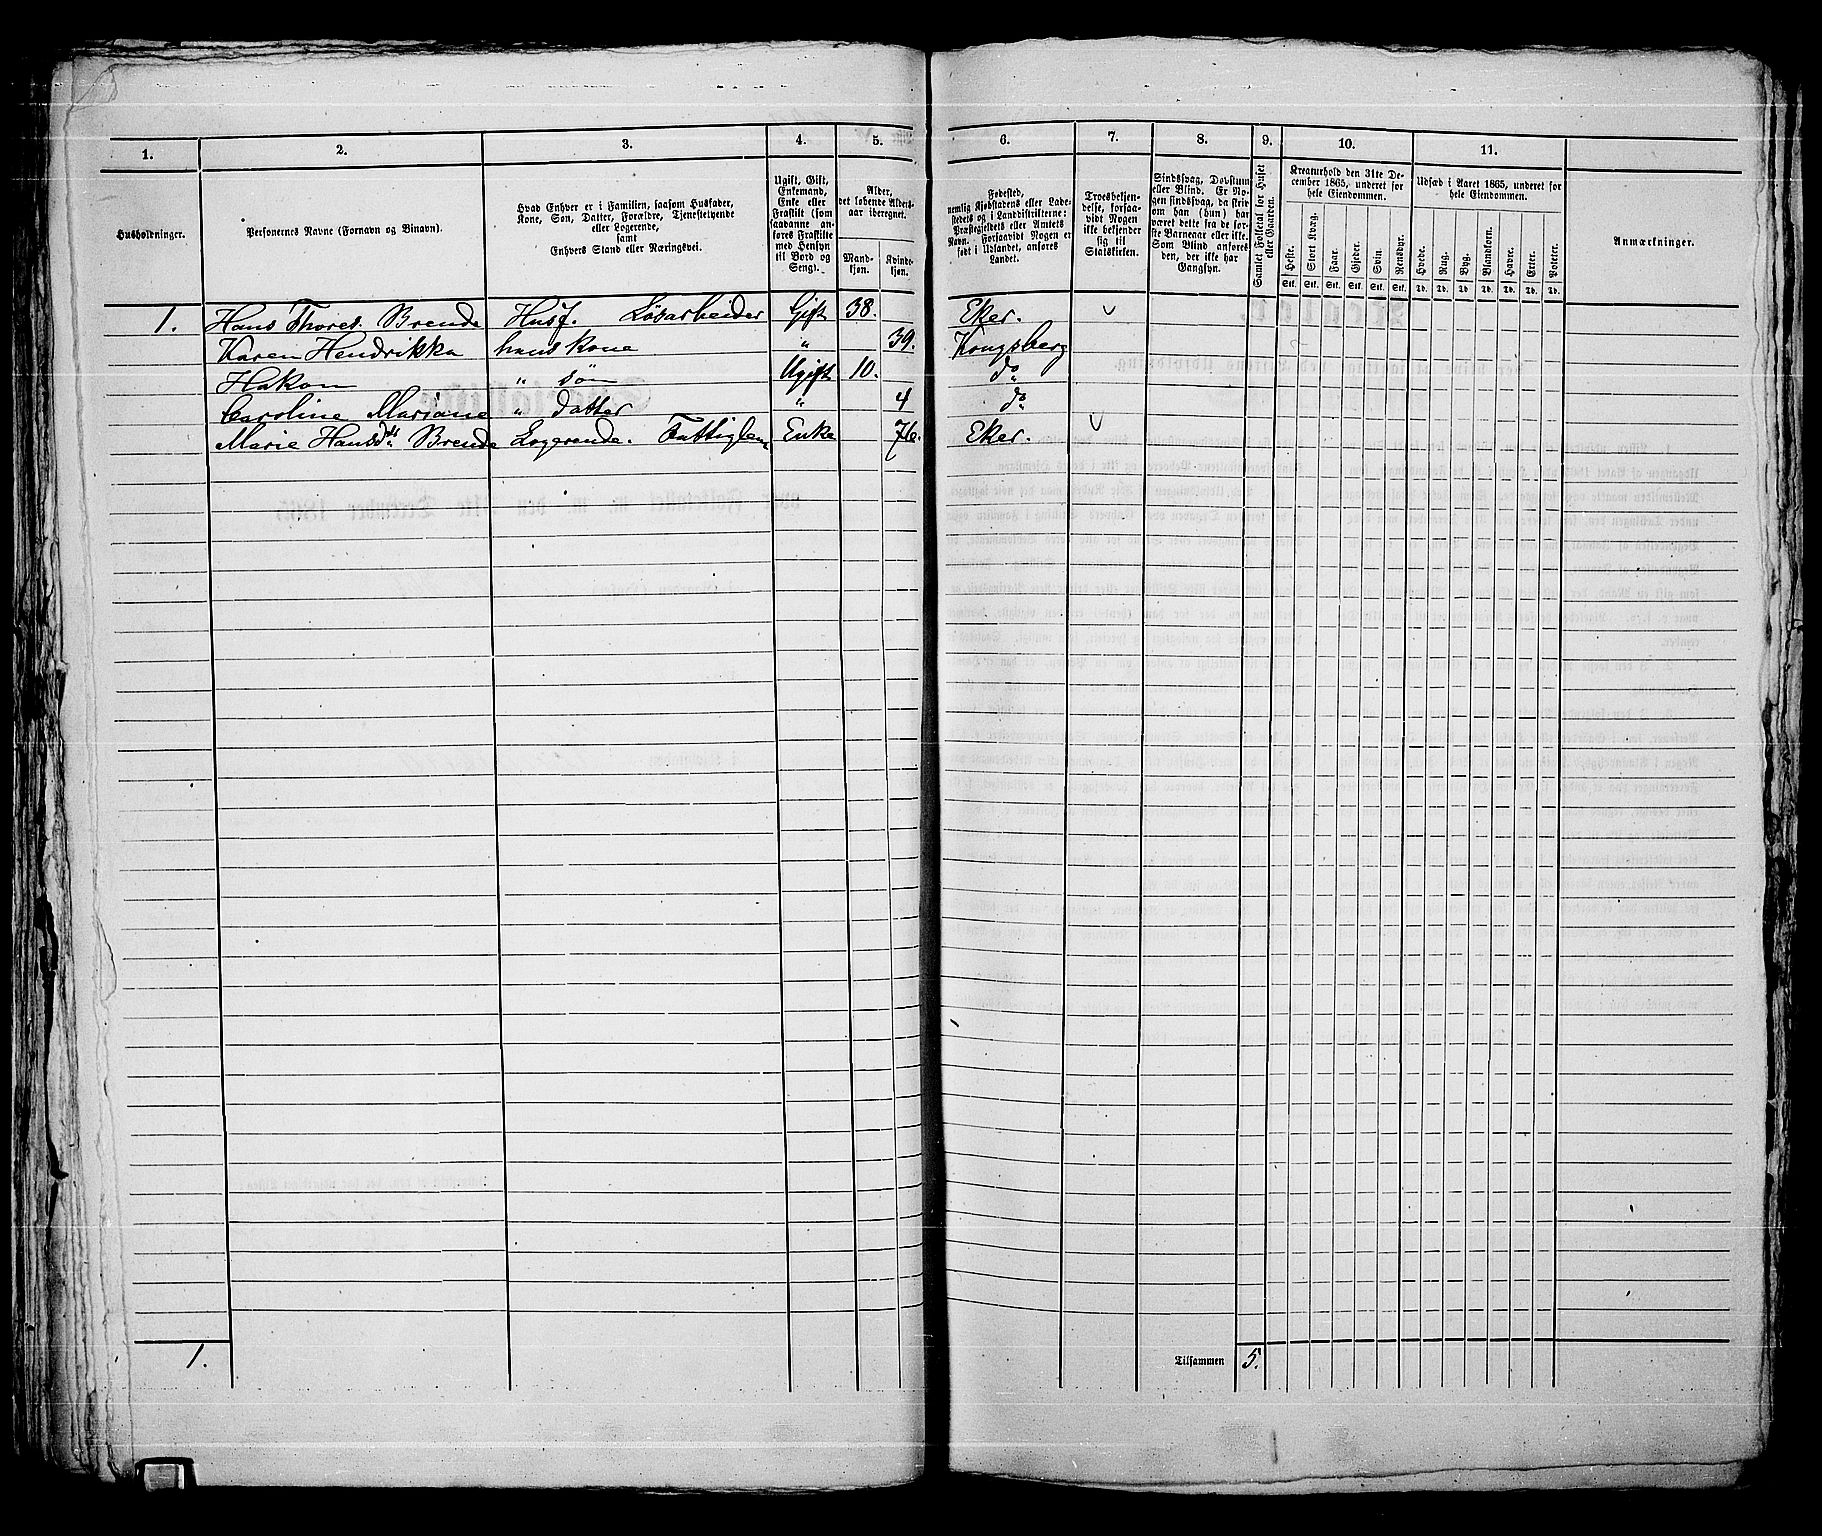 1. 2. 3. 4. 5. 6. 7. 8. 9. 10. 11.
Husholdninger.
Personernes Navne (Fornavn og Binavn).
Hvad Enhver er i Familien, saasom Husfader,
Kone, Søn, Datter, Forældre, Tjenestetyende
eller Logerende,
samt
Enhvers Stand eller Næringsvei.
Ugift, Gift,
Enkemand,
Enke eller
Fraskilt (som
saadanne an-
føres Fraskilte
med Hensyn
til Bord og
Seng).
Alder,
det løbende Alders-
aar iberegnet.
Mand-
kjøn.
Kvinde-
kjøn.
Fødested,
nemlig Kjøbstadens eller Lade-
stedets og i Landdistrikterne:
Præstegjeldets eller Amtets
Navn. Forsaavidt Nogen er
født i Udlandet, anføres
Landet.
Troesbekjen-
delse, forsaa-
vidt Nogen
ikke bekjender
sig til
Statskirken.
Sindssvag, Døvstum
eller Blind. Er No-
gen sindssvag, da skriv
om han (hun) har
været dette fra de før-
ste Barneaar eller ikke.
Som Blind anføres
den, der ikke har
Gangsyn.
Samlet Folketal for Huset
eller Gaarden.
Kreaturhold den 31te De-
cember 1865, underet for
hele Eiendommen.
Heste. Stort Kvæg. Faar. Gjeder. Svin. Rensdyr.
Stk. Stk. Stk. Stk. Stk. Stk.
Udsæd i Aaret 1865, underet for
hele Eiendommen.
Hvede. Rug. Byg. Blandkorn. Havre. Erter. Poteter.
Td. Td. Td. Td. Td. Td. Td.
Anmærkninger.
1. Hans Thores. Brende Husf. Løsarbeider Gift 38. Eker.
Karen Hendrikka hans kone " 39. Kongsberg
Hakon " søn Ugift 10. do
Caroline Mariane " datter " 4 do
Marie Hansdt. Brende Logerende. Fattiglem Enke 76. Eker.
1. Tilsammen 5.